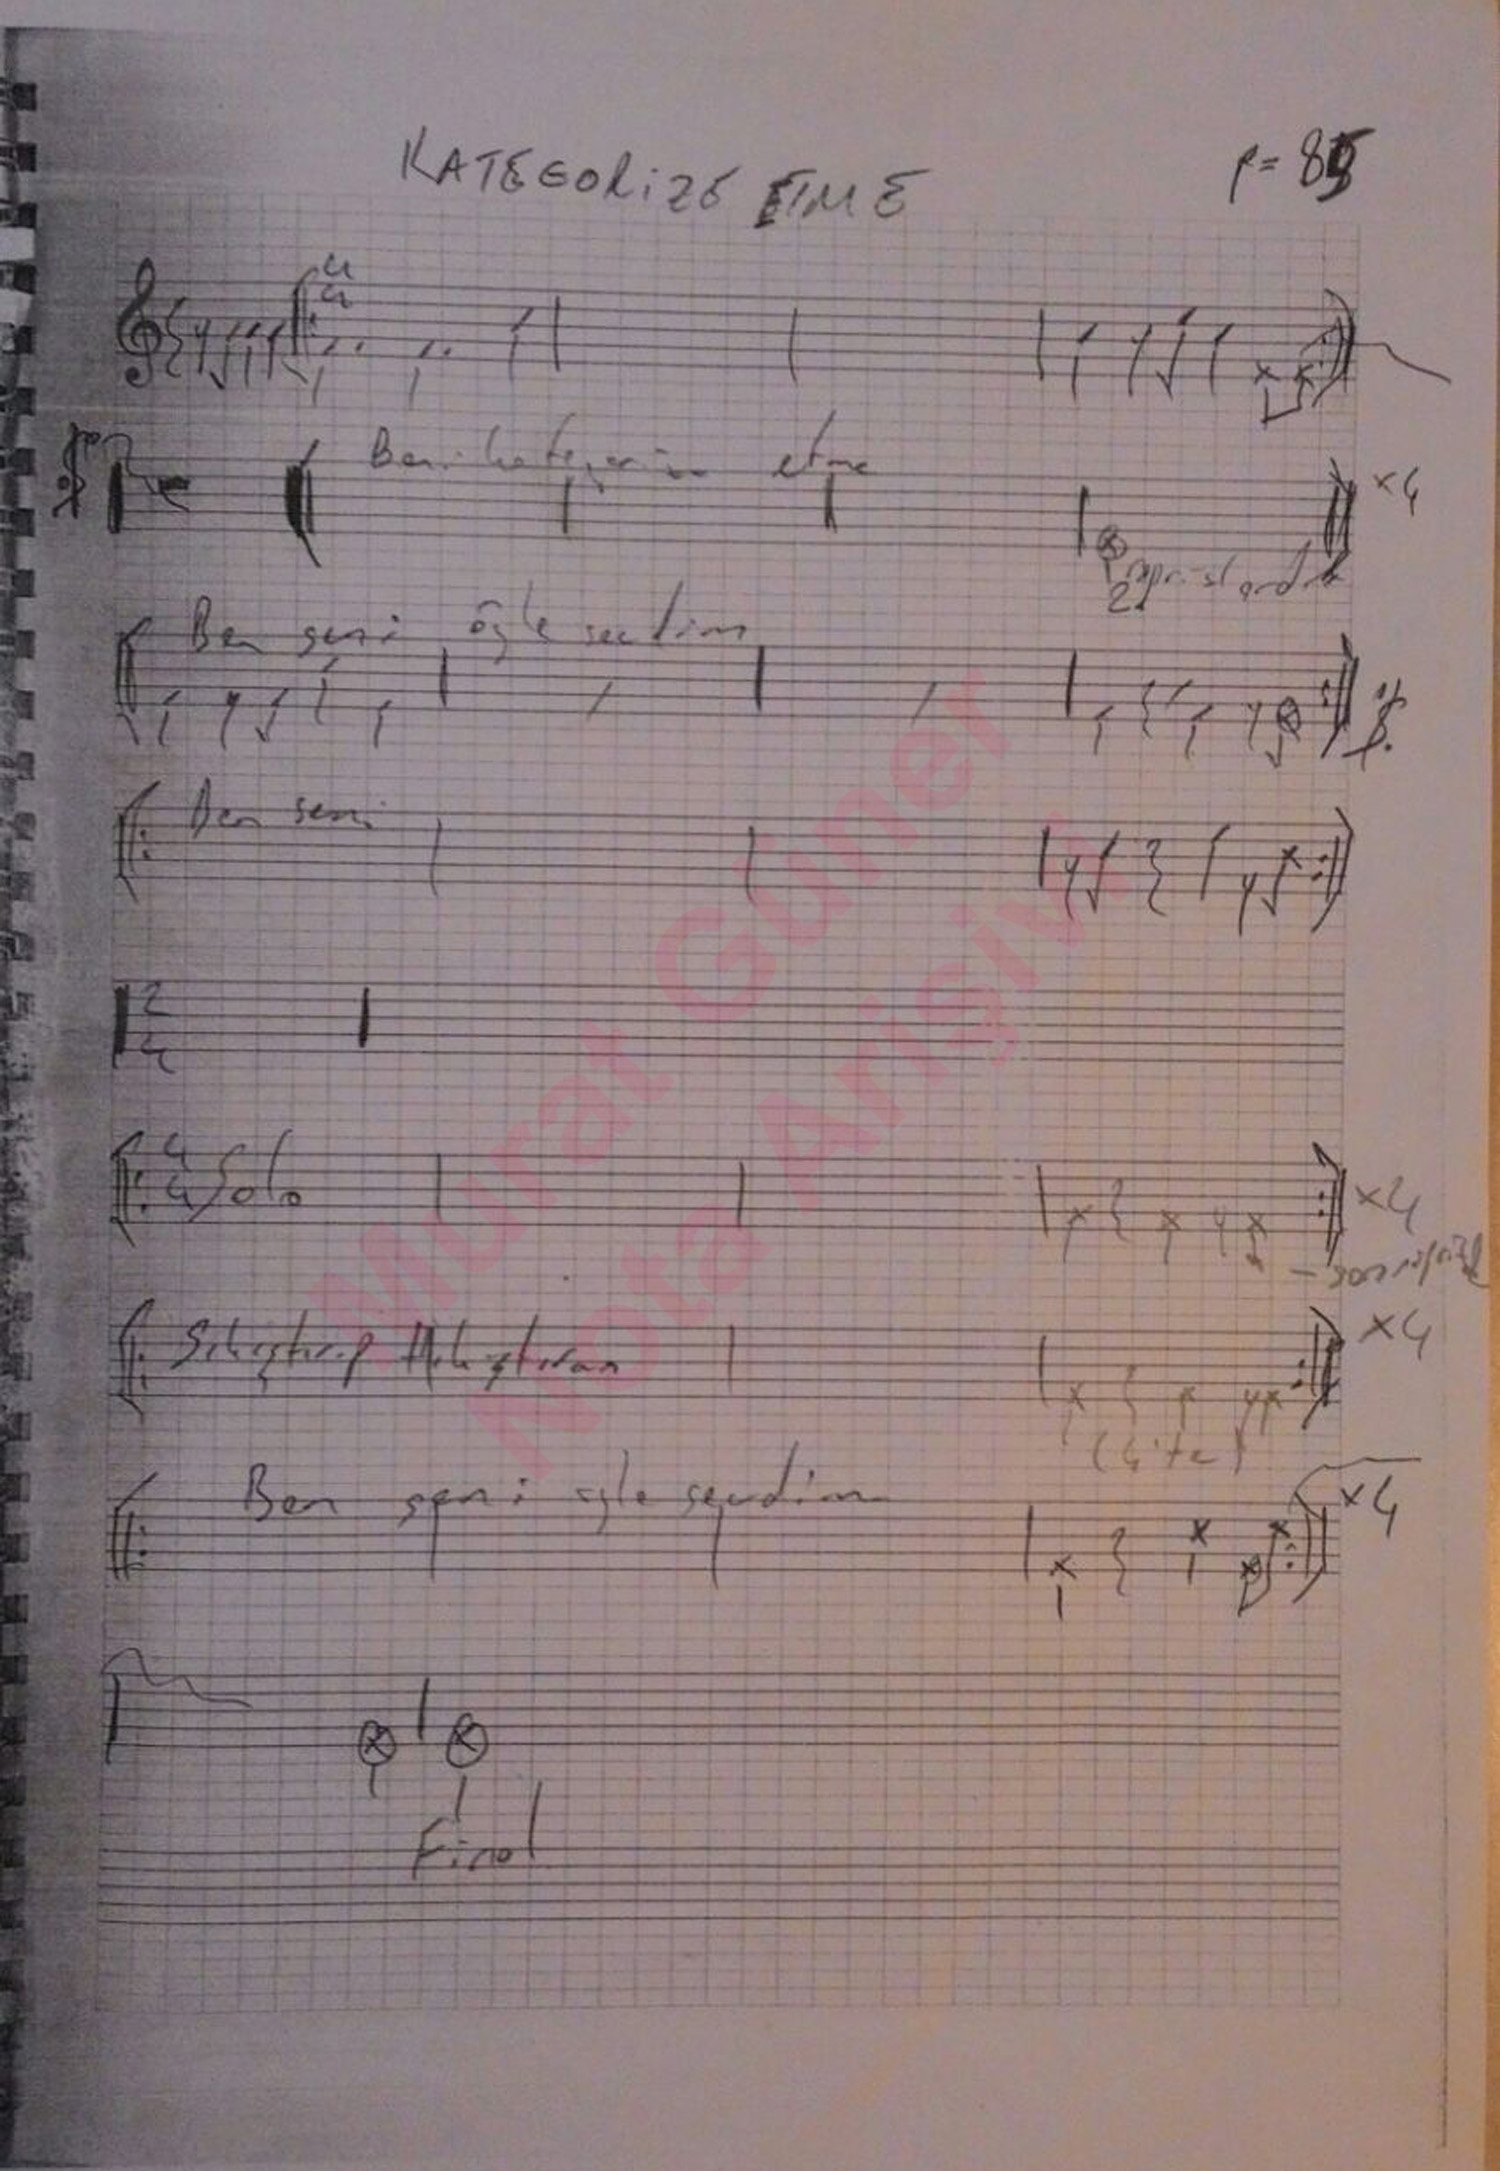 KATEGORİZE ETME
4
4
Beni kategorize etme
x4
2.
Ben seni öyle sevdim
Ben seni
2
4
4
4 Solo
x4
Sıkıştırıp Akıştıran
x4
Ben seni öyle sevdim
x4
Final
Murat Güner
Nota Arişivi